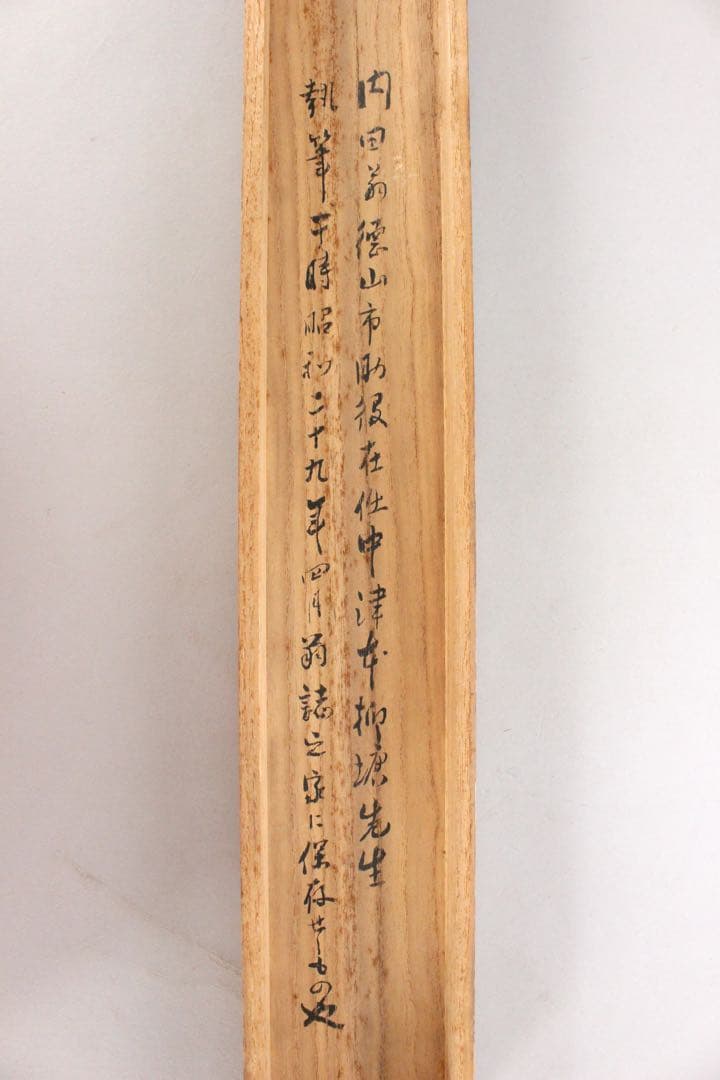 内田翁徳山市助役在任中津本柳塘先生
執筆于時昭和二十九年四月翁誌之家に保存せしもの也